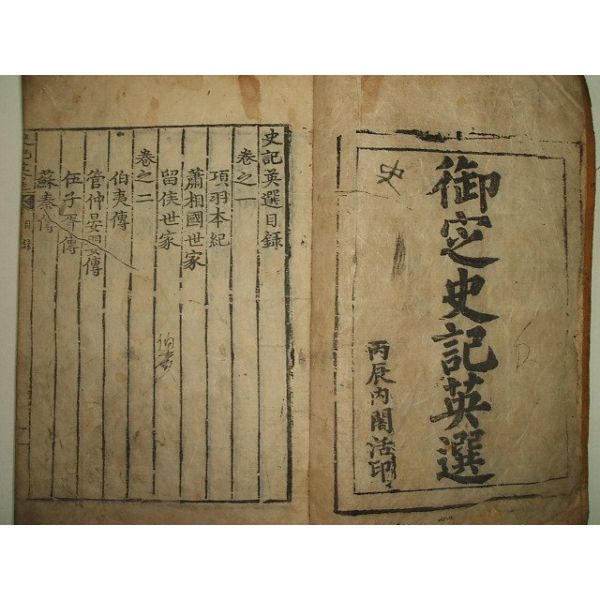 御定史記英選
丙辰內閣活印
史
史記英選目錄
卷之一
項羽本紀
蕭相國世家
留侯世家
卷之二
伯夷傳
管仲晏嬰傳
伍子胥傳
蘇秦傳
伯夷
目錄